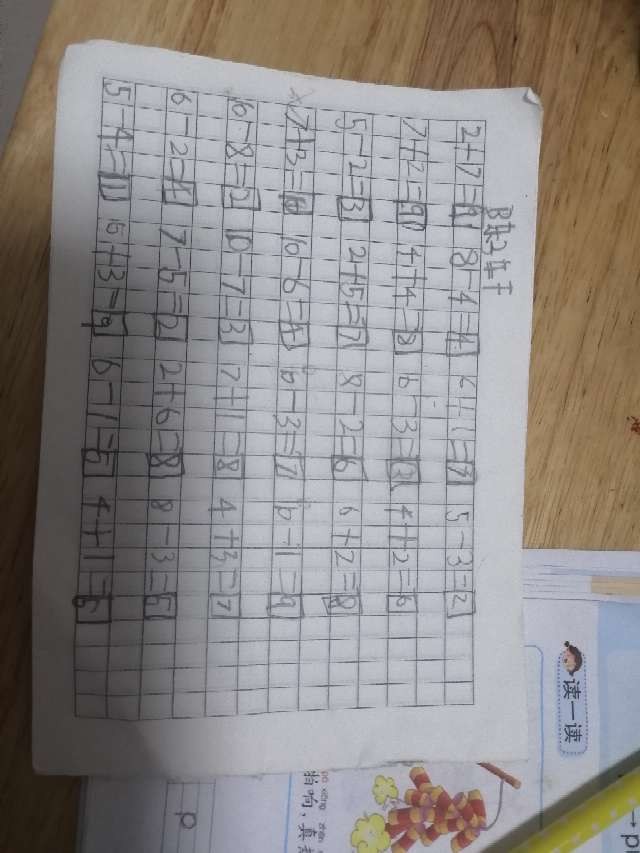 2+7=9 8-4=4 6+1=7 5-3=2
7+2=9 4+4=8 6-3=3 4+2=6
5-2=3 2+5=7 8-2=6 6+2=8
7+3=10 10-6=4 10-3=7 10-1=9
10-8=2 10-7=3 7+1=8 4+3=7
6-2=4 7-5=2 2+6=8 8-3=5
5-4=1 6+3=9 6-1=5 4+1=
读一读
p